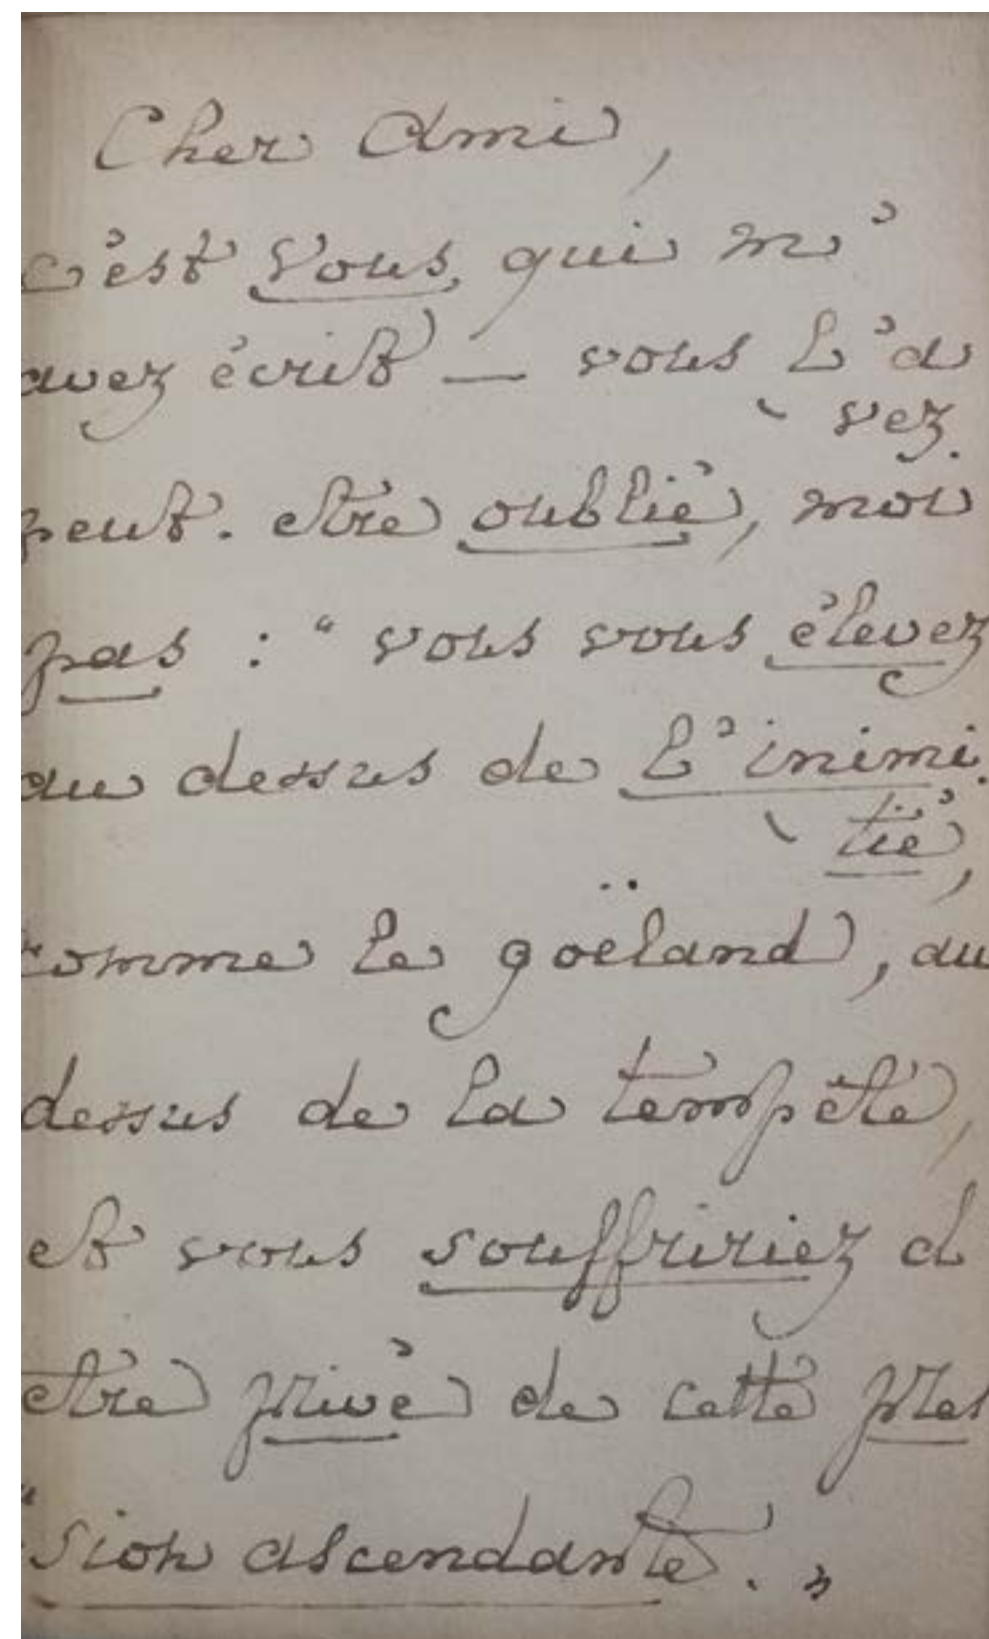 Cher Ami,
c'est vous, qui m'
avez écrit — vous l'a
vez.
peut. etre oublié, moi
pas : " vous vous élevez
au dessus de l'inimi.
tié,
comme le goëland, au
dessus de la tempête,
et vous souffririez d
etre privé de cette pres
"sion ascendante. "